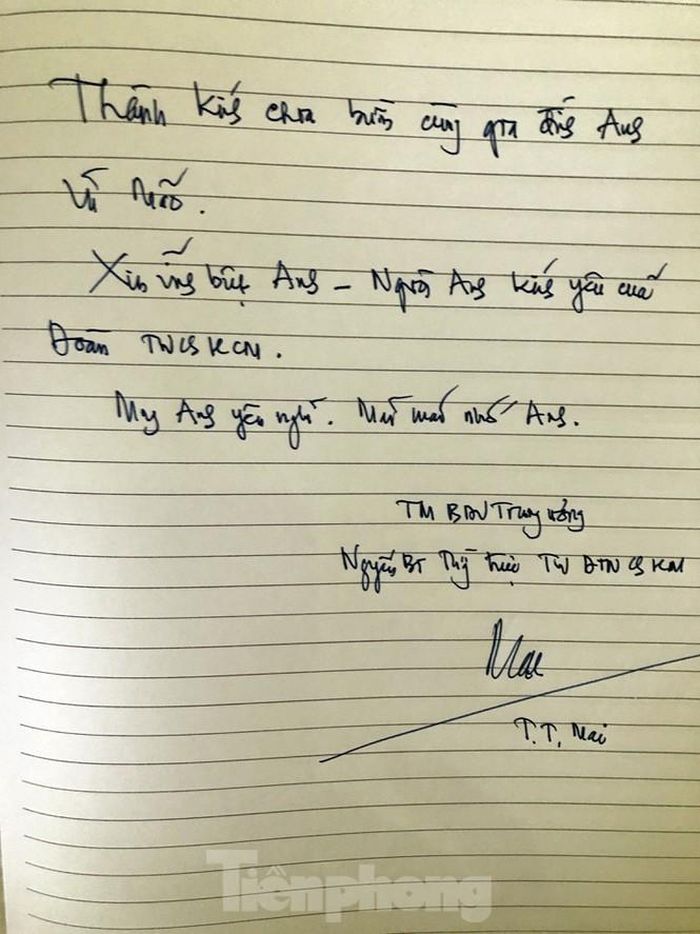 Thành kính chia buồn cùng gia đình Anh
Vũ Mão.
Xin vĩnh biệt Anh – Người Anh kính yêu của
Đoàn TNCS HCM.
Mong Anh yên nghỉ. Mãi mãi nhớ Anh.
TM BDV Trung ương
Nguyên BT Thứ trực TW ĐTNCS HCM
Mai
T.T. Mai
Tiênphong